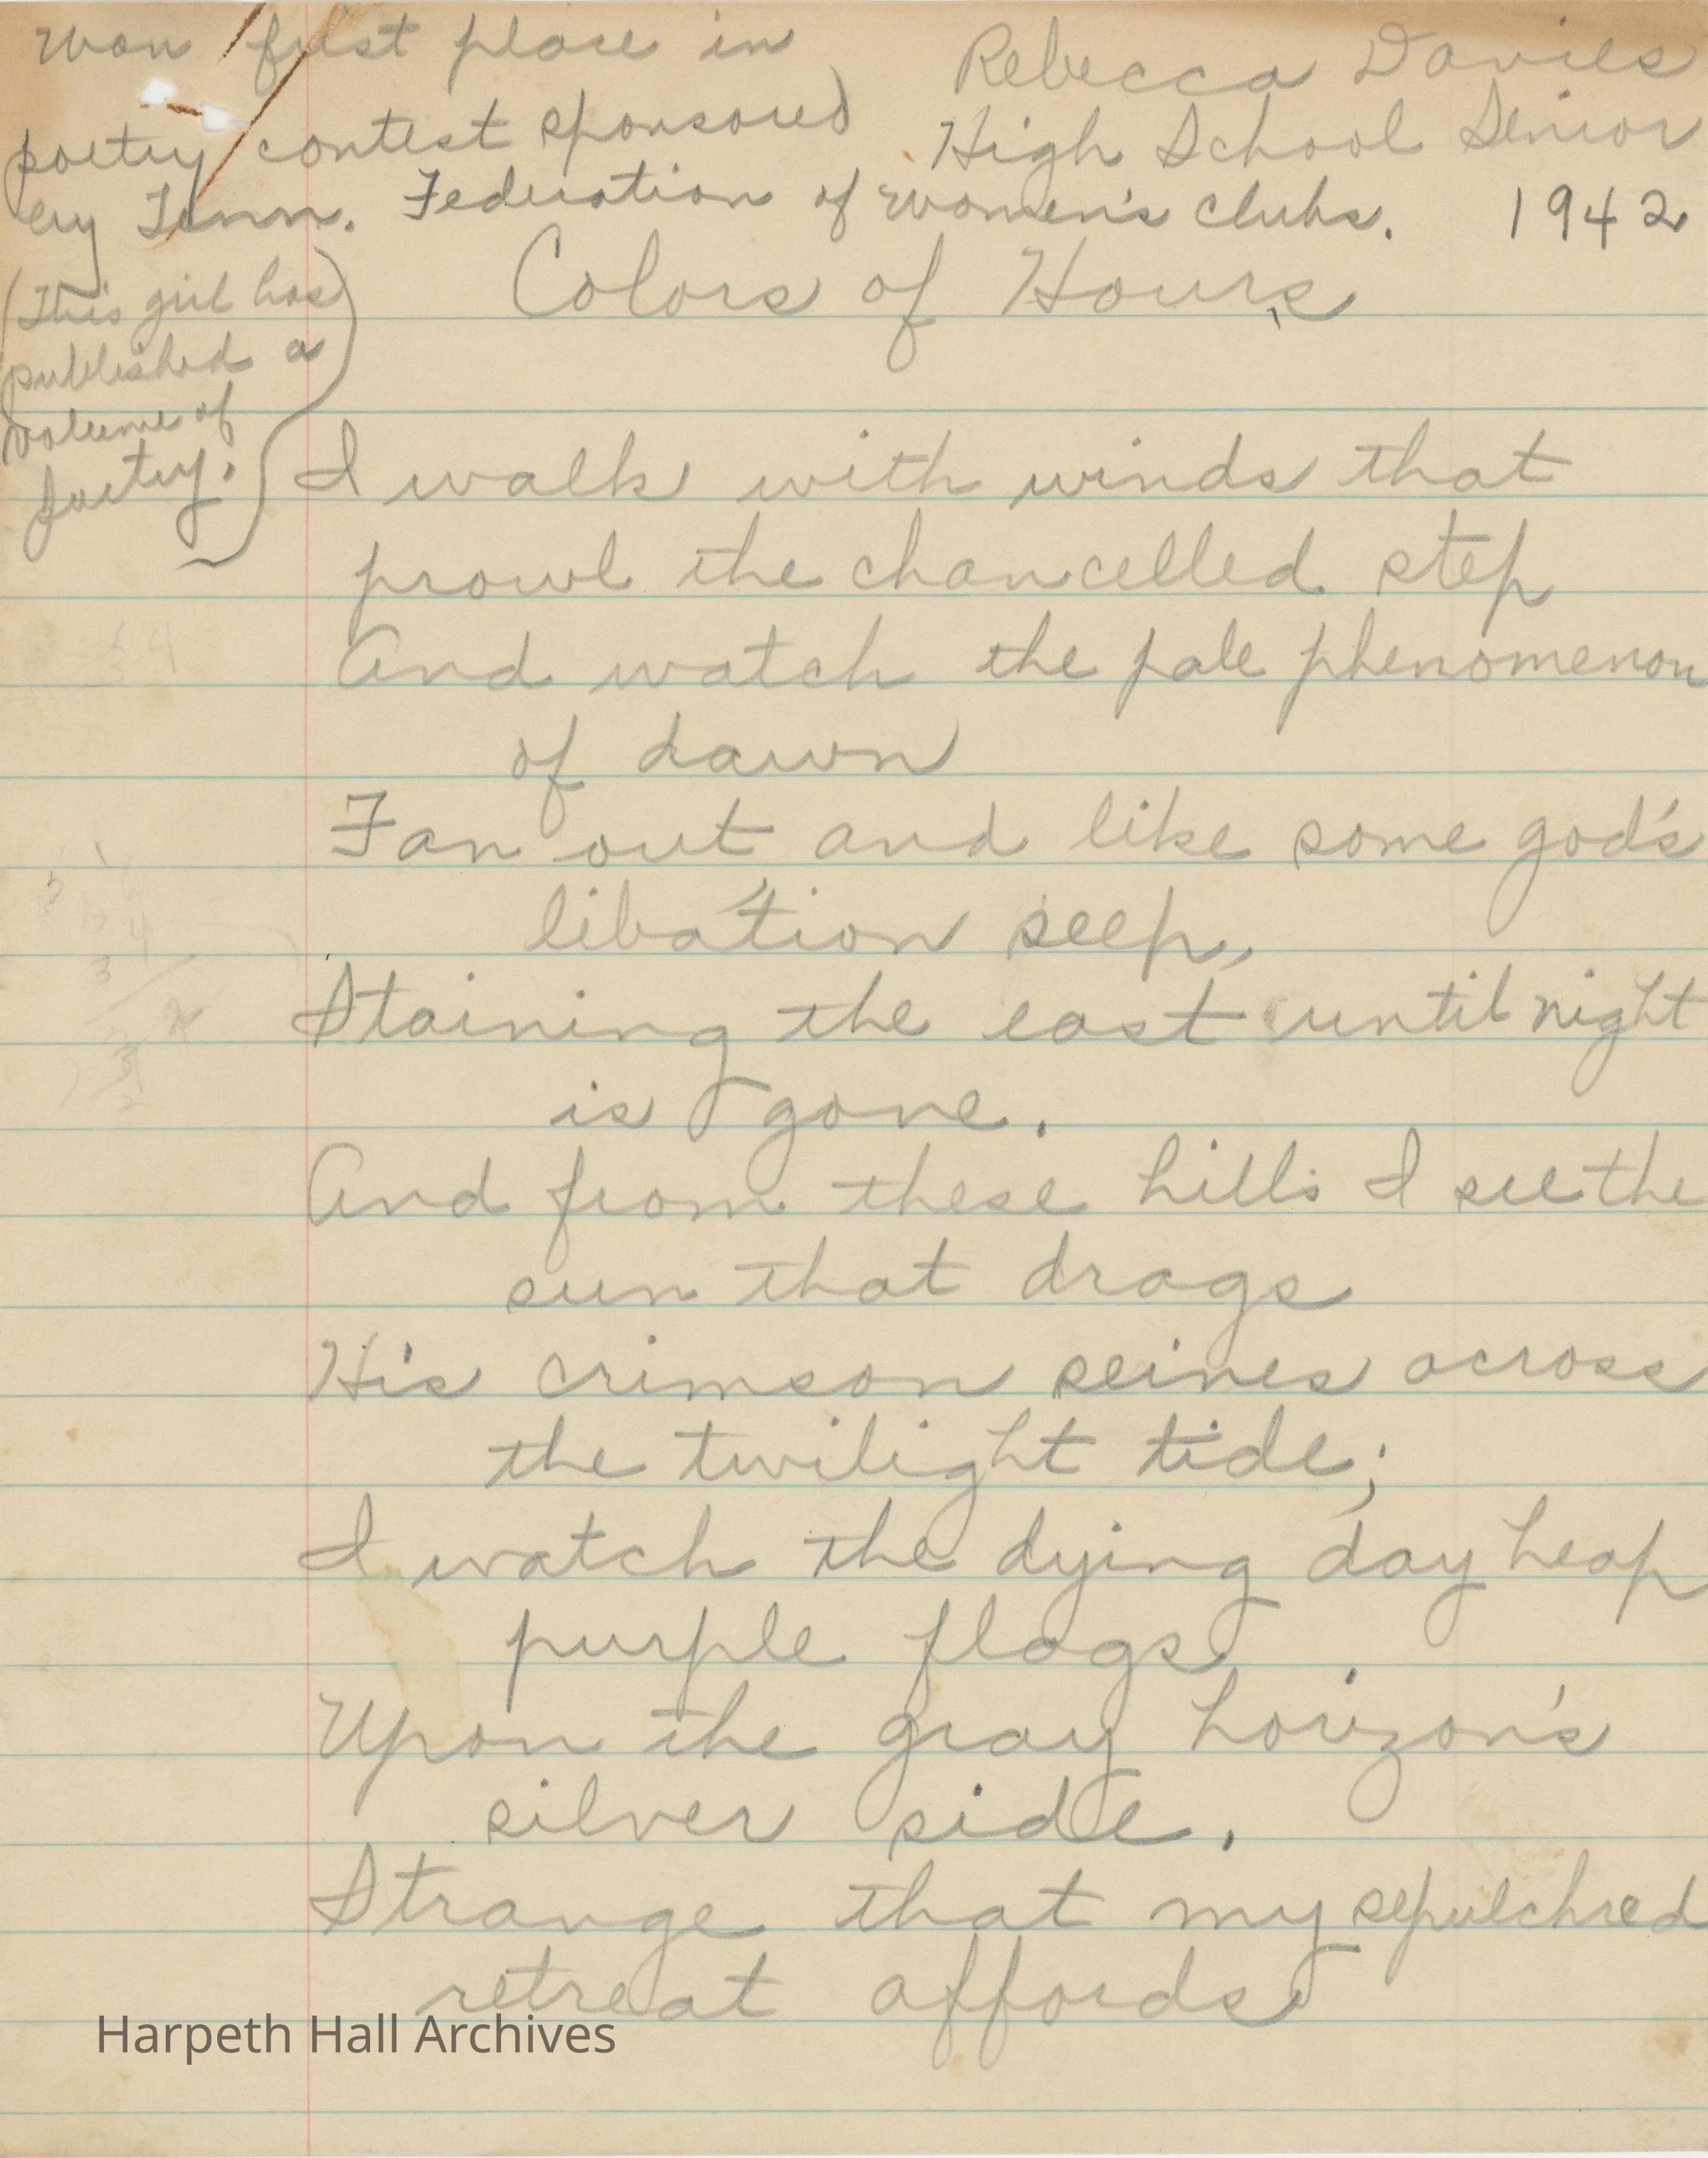 Won first place in
poetry contest sponsored
by Tenn. Federation of Women's Clubs.
Rebecca Davies
High School Senior
1942
(This girl has
published a
volume of
poetry.)
Colors of Hours
I walk with winds that
prowl the chancelled step
And watch the pale phenomenon
of dawn
Fan out and like some god's
libation seep,
Staining the east until night
is gone.
And from these hills I see the
sun that drags
His crimson seines across
the twilight tide;
I watch the dying day heap
purple flags
Upon the gray horizon's
silver side.
Strange that my sepulchred
retreat affords
Harpeth Hall Archives